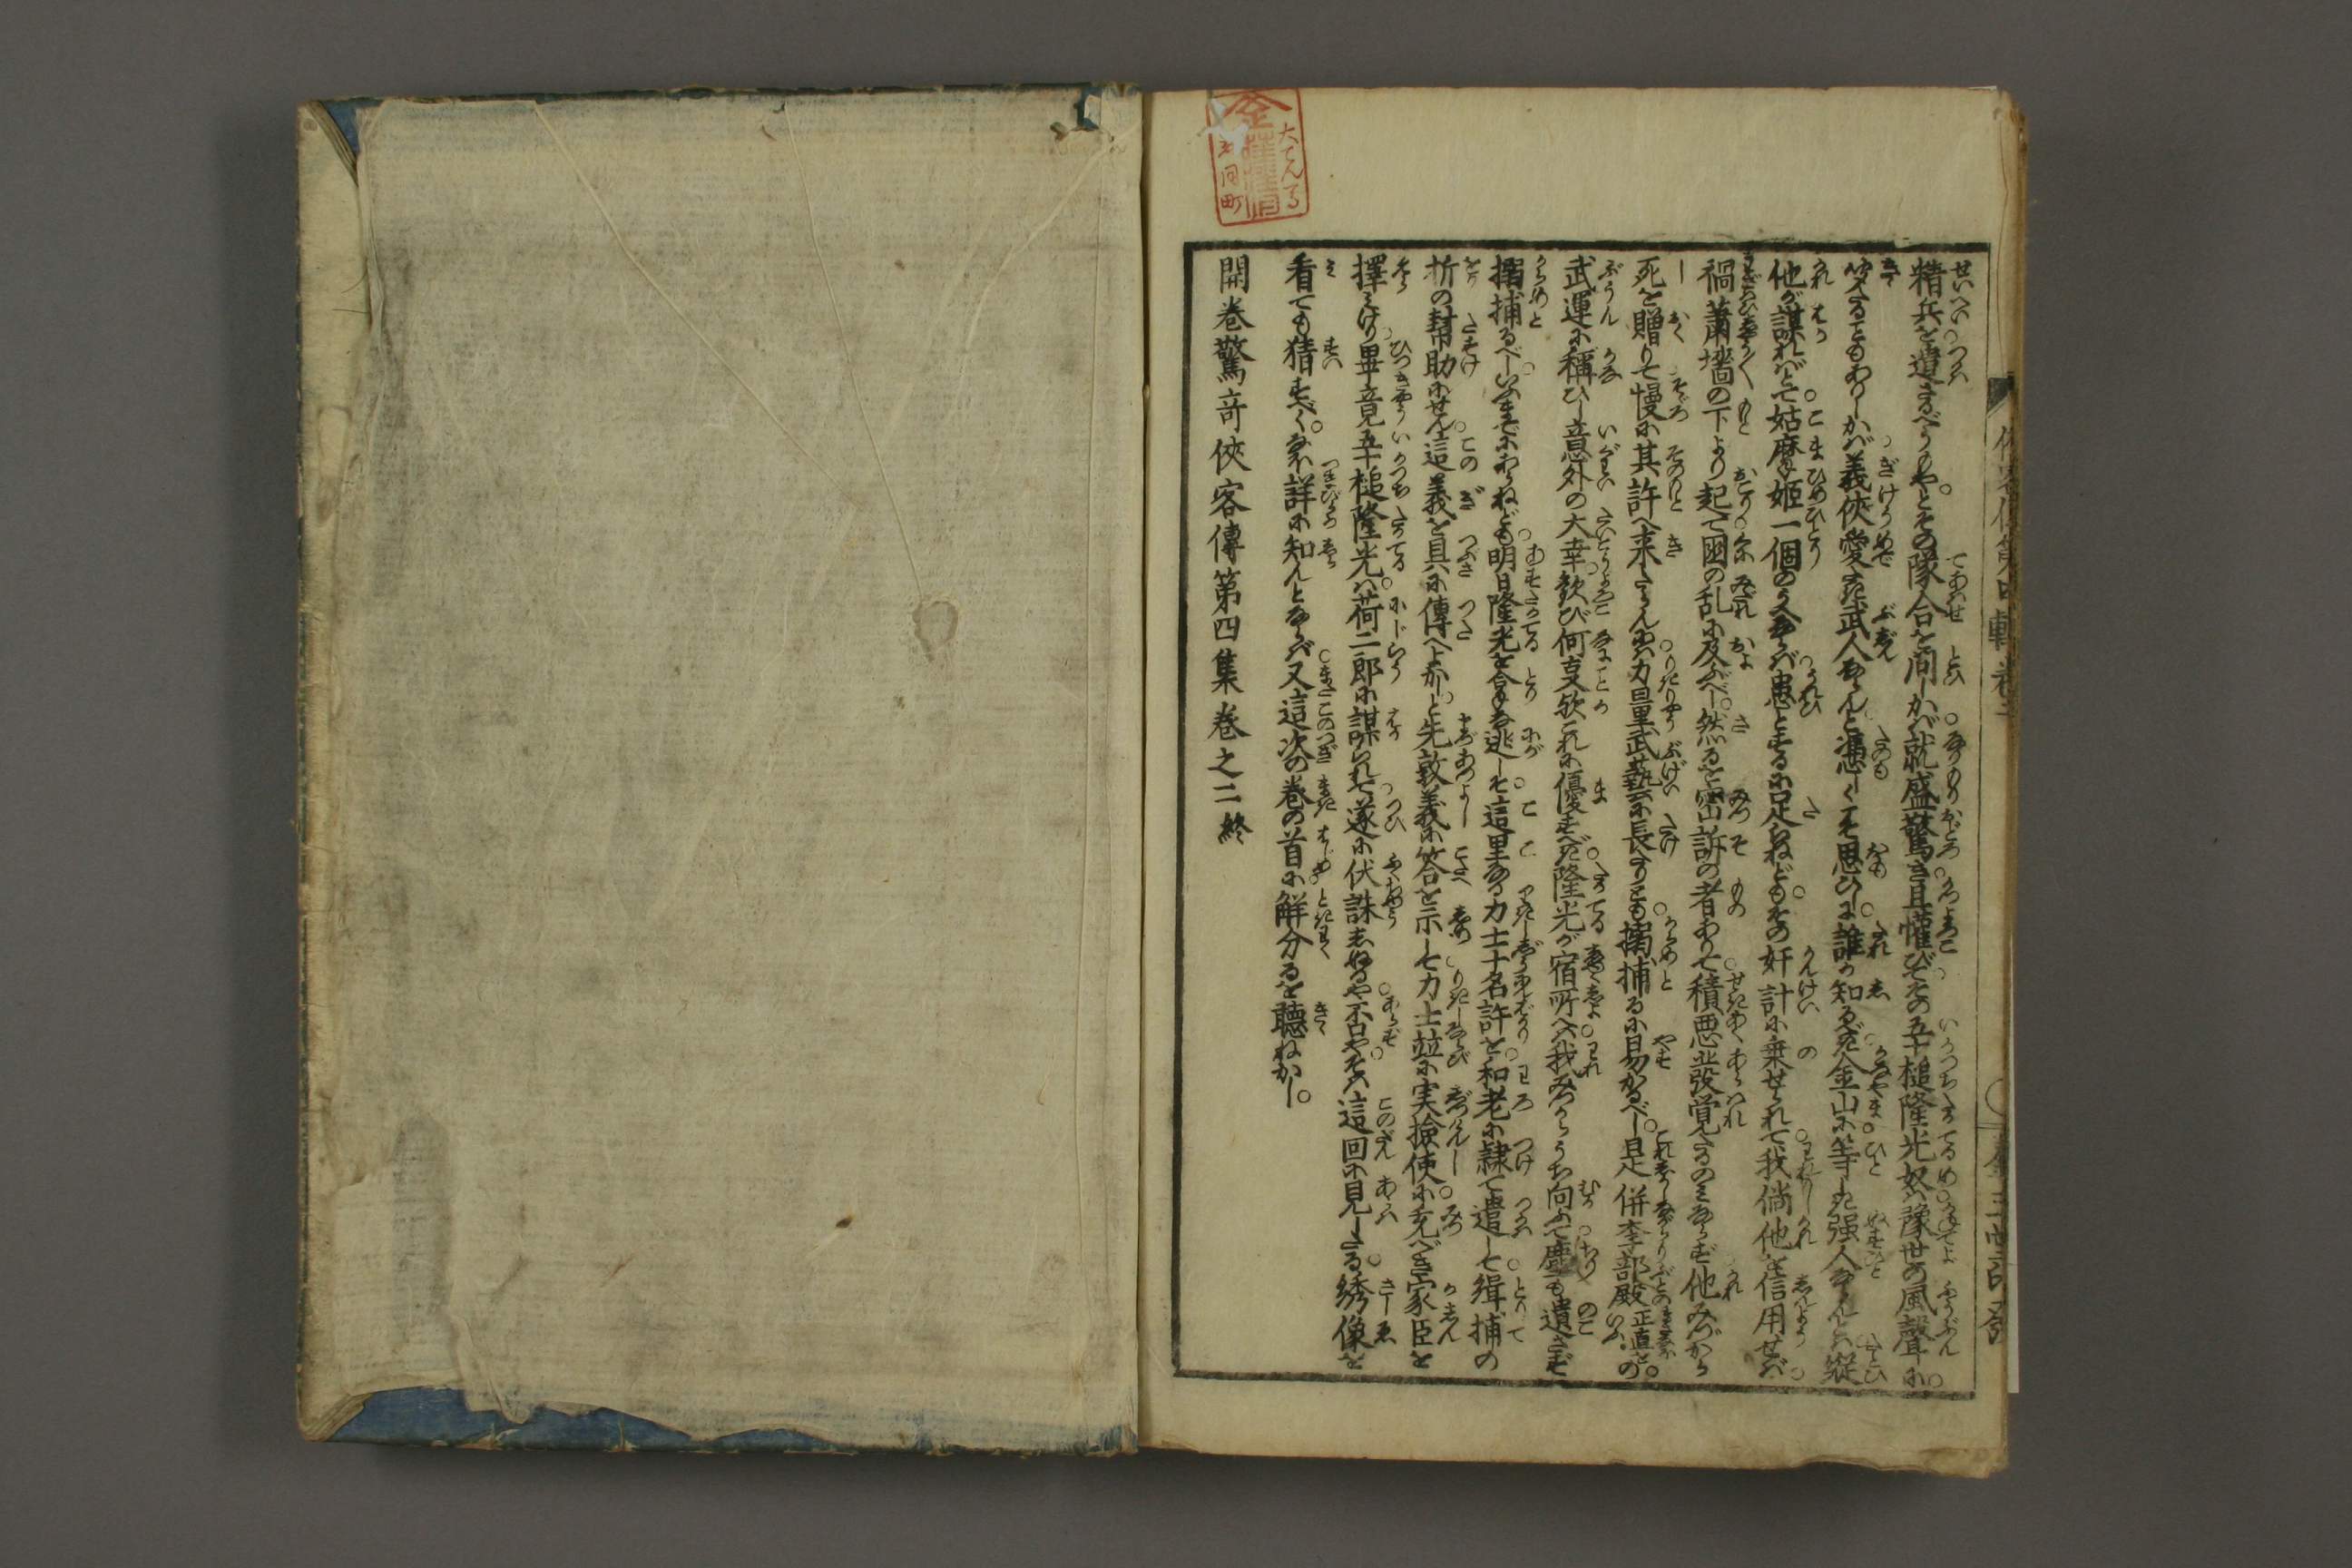 精兵を遣さるべうもやとその隊合を問しかバ就盛驚き且懽びてその五十槌隆光奴ハ豫世の風聲に
ることもありしかバ義俠愛たき武人ならんと憑しくこそ思ひしに誰か知るべき金山に等しき强人ならんとハ縦
他が謀れバとて姑摩姫一個のうへならバ患とするに足らねどもその奸計に乗せられて我倘他を信用せバ
禍蕭墻の下より起て國の乱に及ぶべし然るを密訴の者ありて積悪竝發覚たるのミならず他みづから
死を贈りて慢に其許へ来たらんにハ力量武藝に長たりとも搦捕るに易かるべし是併李部殿正直との
武運に稱ひし意外の大幸歡び何事歟これに優すべき隆光が宿所へハ我みづからうち向ふて塵も遺さず
搦捕るべしいふまでにあらねども明日隆光をとり逃しそ這里なる力士十名許を和老に隸て遣して緝捕の
折の幇助にせん這義を具に傳へよかしと先敦義に答を示して力士竝に実撿使に充べき家臣を
擇ミけり畢竟五十槌隆光ハ荷二郎に謀られて遂に伏誅しぬるや否やそハ這回に見したる綉像を
看ても猜すべくなほ詳に知んとならバ又這次の巻の首に解分るを聽ねかし
開卷驚奇俠客傳第四集卷之二終
大てんま
町